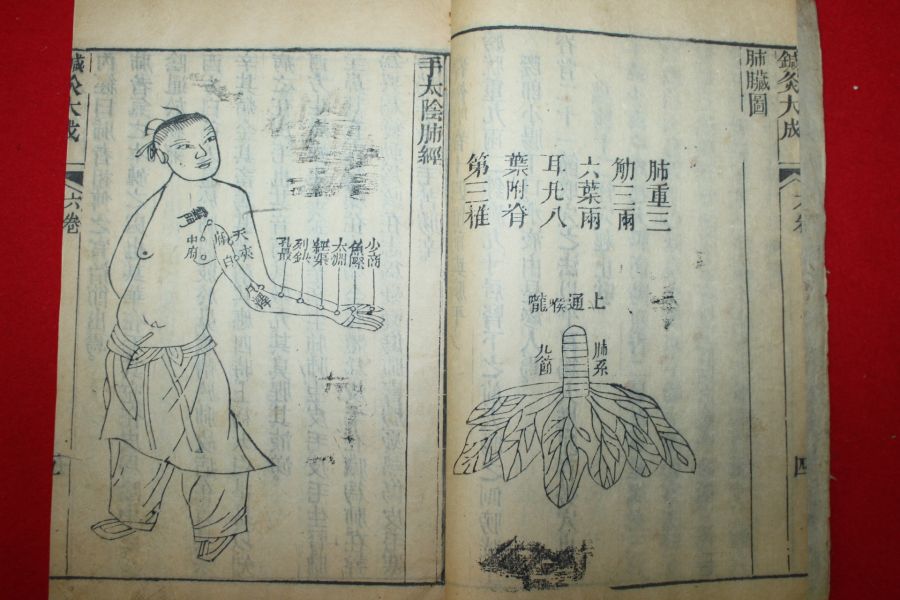 鍼灸大成
肺臟圖
肺重三
觔三兩
六葉兩
耳凡八
葉附脊
第三椎
上通喉嚨
肺系
九節
四
手太陰肺經
少商
魚際
太淵
經渠
列缺
孔最
尺澤
天府
夾白
雲門
中府
鍼灸大成
六卷